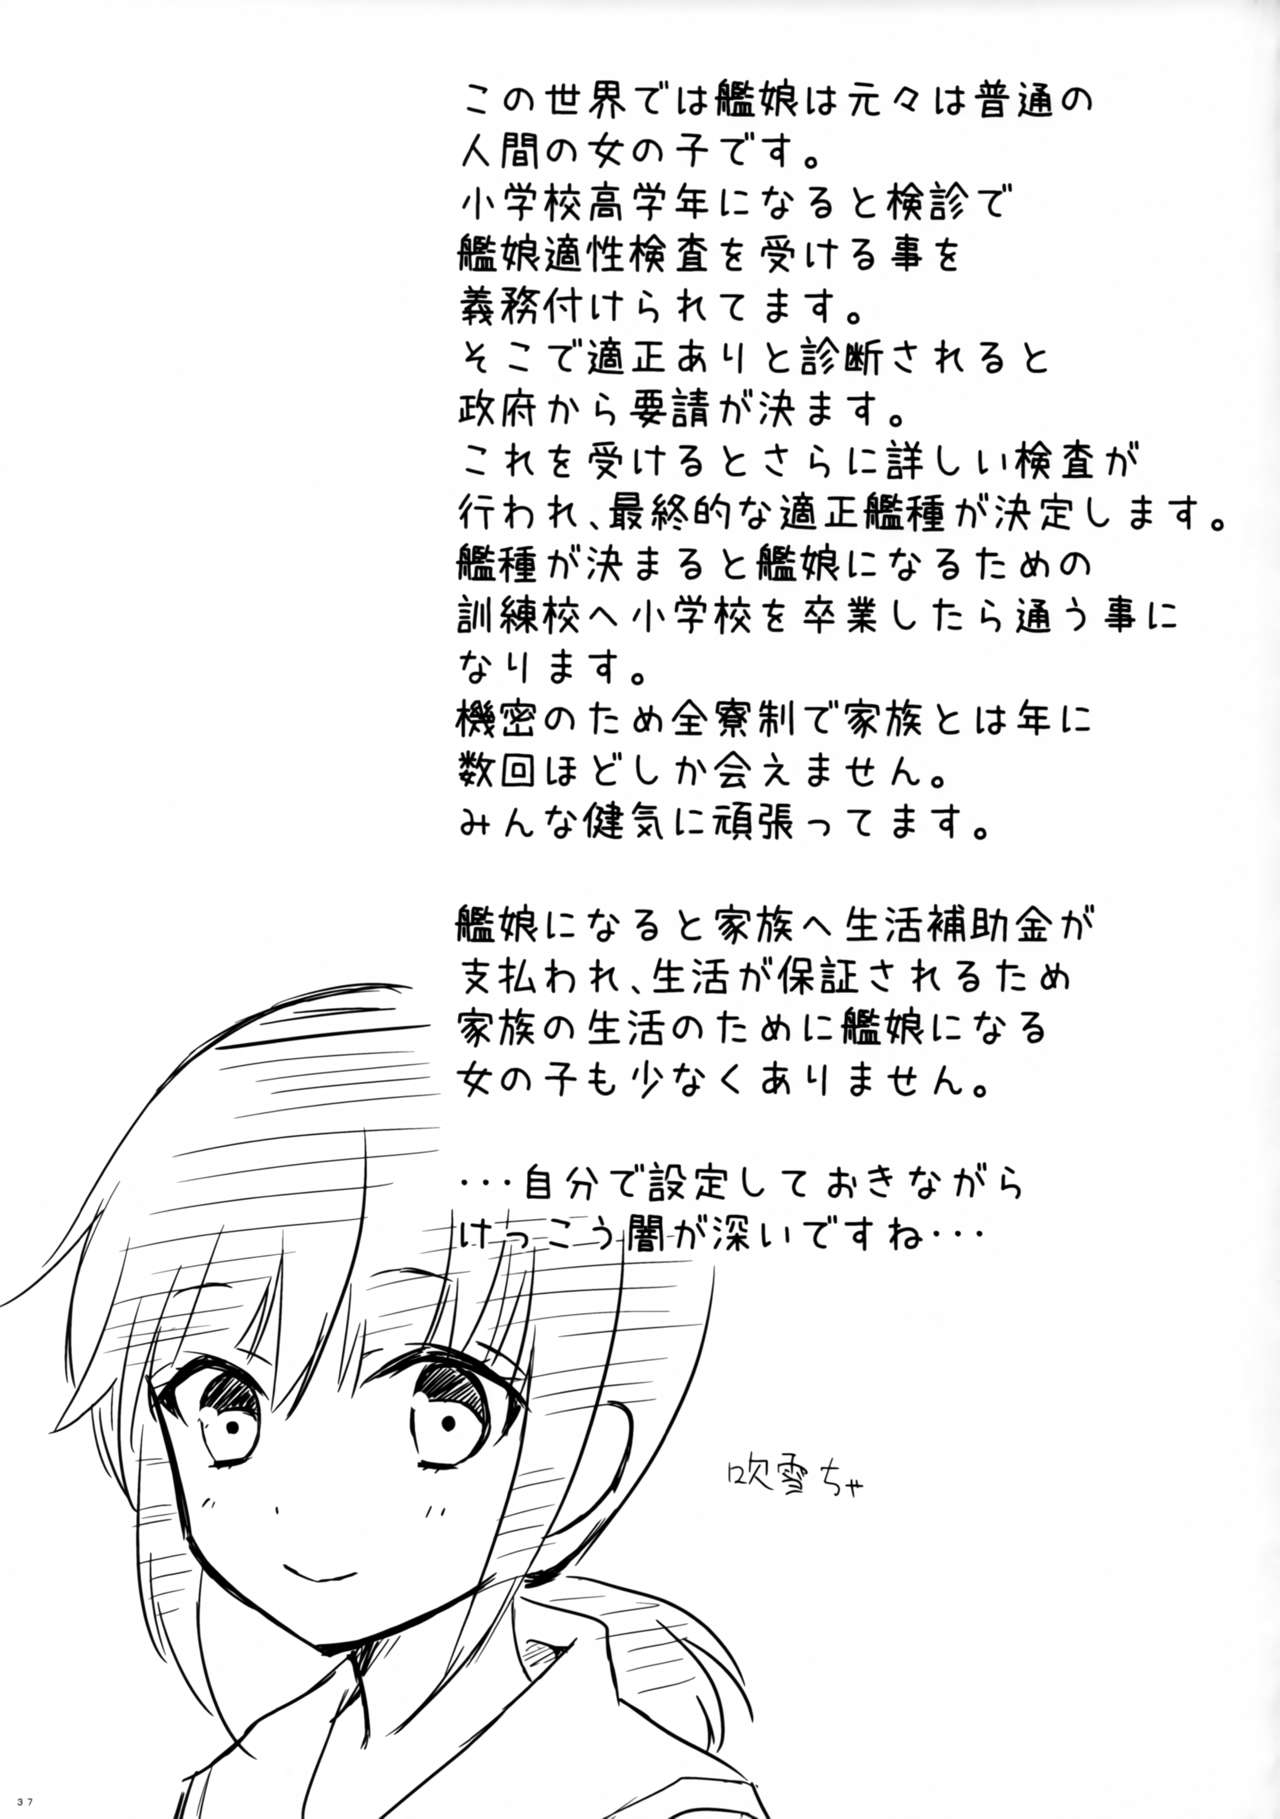 この世界では艦娘は元々は普通の
人間の女の子です。
小学校高学年になると検診で
艦娘適性検査を受ける事を
義務付けられてます。
そこで適正ありと診断されると
政府から要請が決ます。
これを受けるとさらに詳しい検査が
行われ、最終的な適正艦種が決定します。
艦種が決まると艦娘になるための
訓練校へ小学校を卒業したら通う事に
なります。
機密のため全寮制で家族とは年に
数回ほどしか会えません。
みんな健気に頑張ってます。

艦娘になると家族へ生活補助金が
支払われ、生活が保証されるため
家族の生活のために艦娘になる
女の子も少なくありません。

･･･自分で設定しておきながら
けっこう闇が深いですね･･･
吹雪ちゃ
37